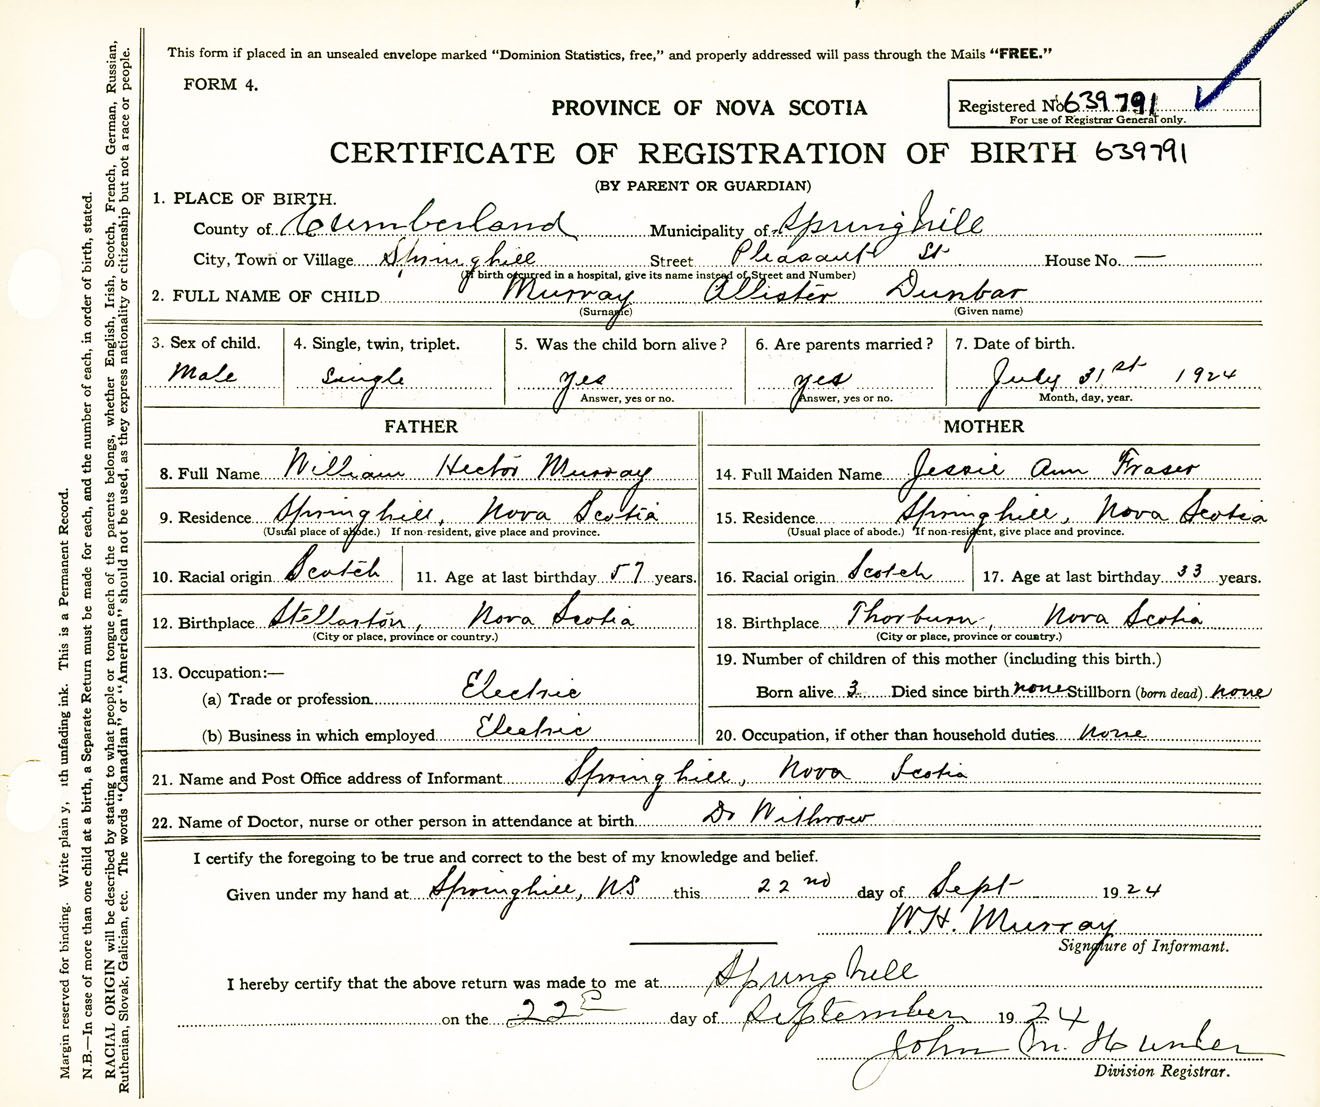 This form if placed in an unsealed envelope marked "Dominion Statistics, free," and properly addressed will pass through the Mails "FREE."
FORM 4.
PROVINCE OF NOVA SCOTIA
Registered No 639791
For use of Registrar General only.
CERTIFICATE OF REGISTRATION OF BIRTH 639791
(BY PARENT OR GUARDIAN)
1. PLACE OF BIRTH.
County of Cumberland Municipality of Springhill
City, Town or Village Springhill Street Pleasant St House No. —
(If birth occurred in a hospital, give its name instead of Street and Number)
2. FULL NAME OF CHILD Murray Allister Dunbar
(Surname) (Given name)
3. Sex of child. 4. Single, twin, triplet. 5. Was the child born alive? 6. Are parents married? 7. Date of birth.
Male Single yes yes July 31st 1924
Answer, yes or no. Answer, yes or no. Month, day, year.
FATHER MOTHER
8. Full Name William Hector Murray 14. Full Maiden Name Jessie Ann Fraser
9. Residence Springhill, Nova Scotia 15. Residence Springhill, Nova Scotia
(Usual place of abode.) If non-resident, give place and province. (Usual place of abode.) If non-resident, give place and province.
10. Racial origin Scotch 11. Age at last birthday 57 years. 16. Racial origin Scotch 17. Age at last birthday 33 years.
12. Birthplace Stellarton, Nova Scotia 18. Birthplace Thorburn, Nova Scotia
(City or place, province or country.) (City or place, province or country.)
13. Occupation:— 19. Number of children of this mother (including this birth.)
(a) Trade or profession Electric Born alive 3 Died since birth none Stillborn (born dead) none
(b) Business in which employed Electric 20. Occupation, if other than household duties none
21. Name and Post Office address of Informant Springhill, Nova Scotia
22. Name of Doctor, nurse or other person in attendance at birth Dr Withrow
I certify the foregoing to be true and correct to the best of my knowledge and belief.
Given under my hand at Springhill, NS this 22nd day of Sept 1924
W.H. Murray
Signature of Informant.
I hereby certify that the above return was made to me at Springhill
on the 22 day of September 1924
John M. Hunter
Division Registrar.
Margin reserved for binding. Write plain y, ith unfading ink. This is a Permanent Record.
N.B.—In case of more than one child at a birth, a Separate Return must be made for each, and the number of each, in order of birth, stated.
RACIAL ORIGIN will be described by stating to what people or tongue each of the parents belongs, whether English, Irish, Scotch, French, German, Russian,
Ruthenian, Slovak, Galician, etc. The words "Canadian" or "American" should not be used, as they express nationality or citizenship but not a race or people.